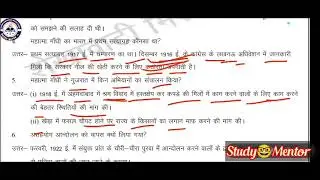 को समझने की सलाह दी थी।
महात्मा गाँधी का भारत में प्रथम सत्याग्रह कौनसा था?
उत्तर— प्रथम सत्याग्रह 1917 ई. में चम्पारण का था। दिसम्बर 1916 ई. के कांग्रेस के लखनऊ अधिवेशन में जानकारी
मिली कि सरकार नील की खेती करने के लिए
5. महात्मा गाँधी ने गुजरात में किन अभियानों का संचालन किया?
उत्तर— (i) 1918 ई. में अहमदाबाद में श्रम विवाद में हस्तक्षेप कर कपड़े की मिलों में काम करने वालों के लिए काम करने
की बेहतर स्थितियों की मांग की।
(ii) खेड़ा में फसल चौपट होने पर राज्य के किसानों का लगान माफ करने की मांग की।
6. असहयोग आन्दोलन को वापस क्यों लिया गया?
उत्तर— फरवरी, 1922 ई. में संयुक्त प्रांत के चौरी-चौरा पुरवा में आन्दोलन करने वालों के
Study Mentor